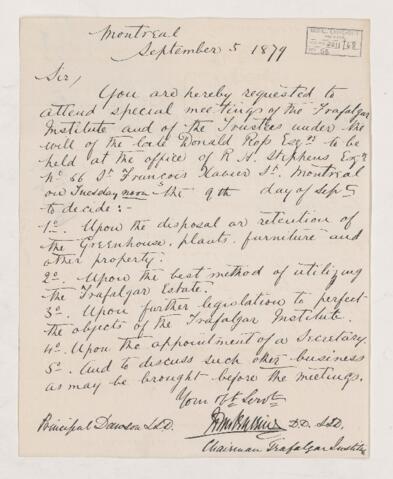 Montreal
September 5 1879
Sir,
You are hereby requested to
attend special meetings of the Trafalgar
Institute and of the Trustees under the
will of the late Donald Ross Esqre to be
held at the office of R. A. Stephens Esqre
No 66 St Francois Xavier St. Montreal
on Tuesday noon the 9th day of Sept
to decide :-
1o. Upon the disposal or retention of
the Greenhouse, plants, furniture and
other property.
2o. Upon the best method of utilizing
the Trafalgar Estate.
3o. Upon further legislation to perfect
the objects of the Trafalgar Institute.
4o. Upon the appointment of a Secretary.
5o. And to discuss such other business
as may be brought before the meetings.
Your Obt Servt
Principal Dawson LLD.
D.D. LLD.
Chairman Trafalgar Institute